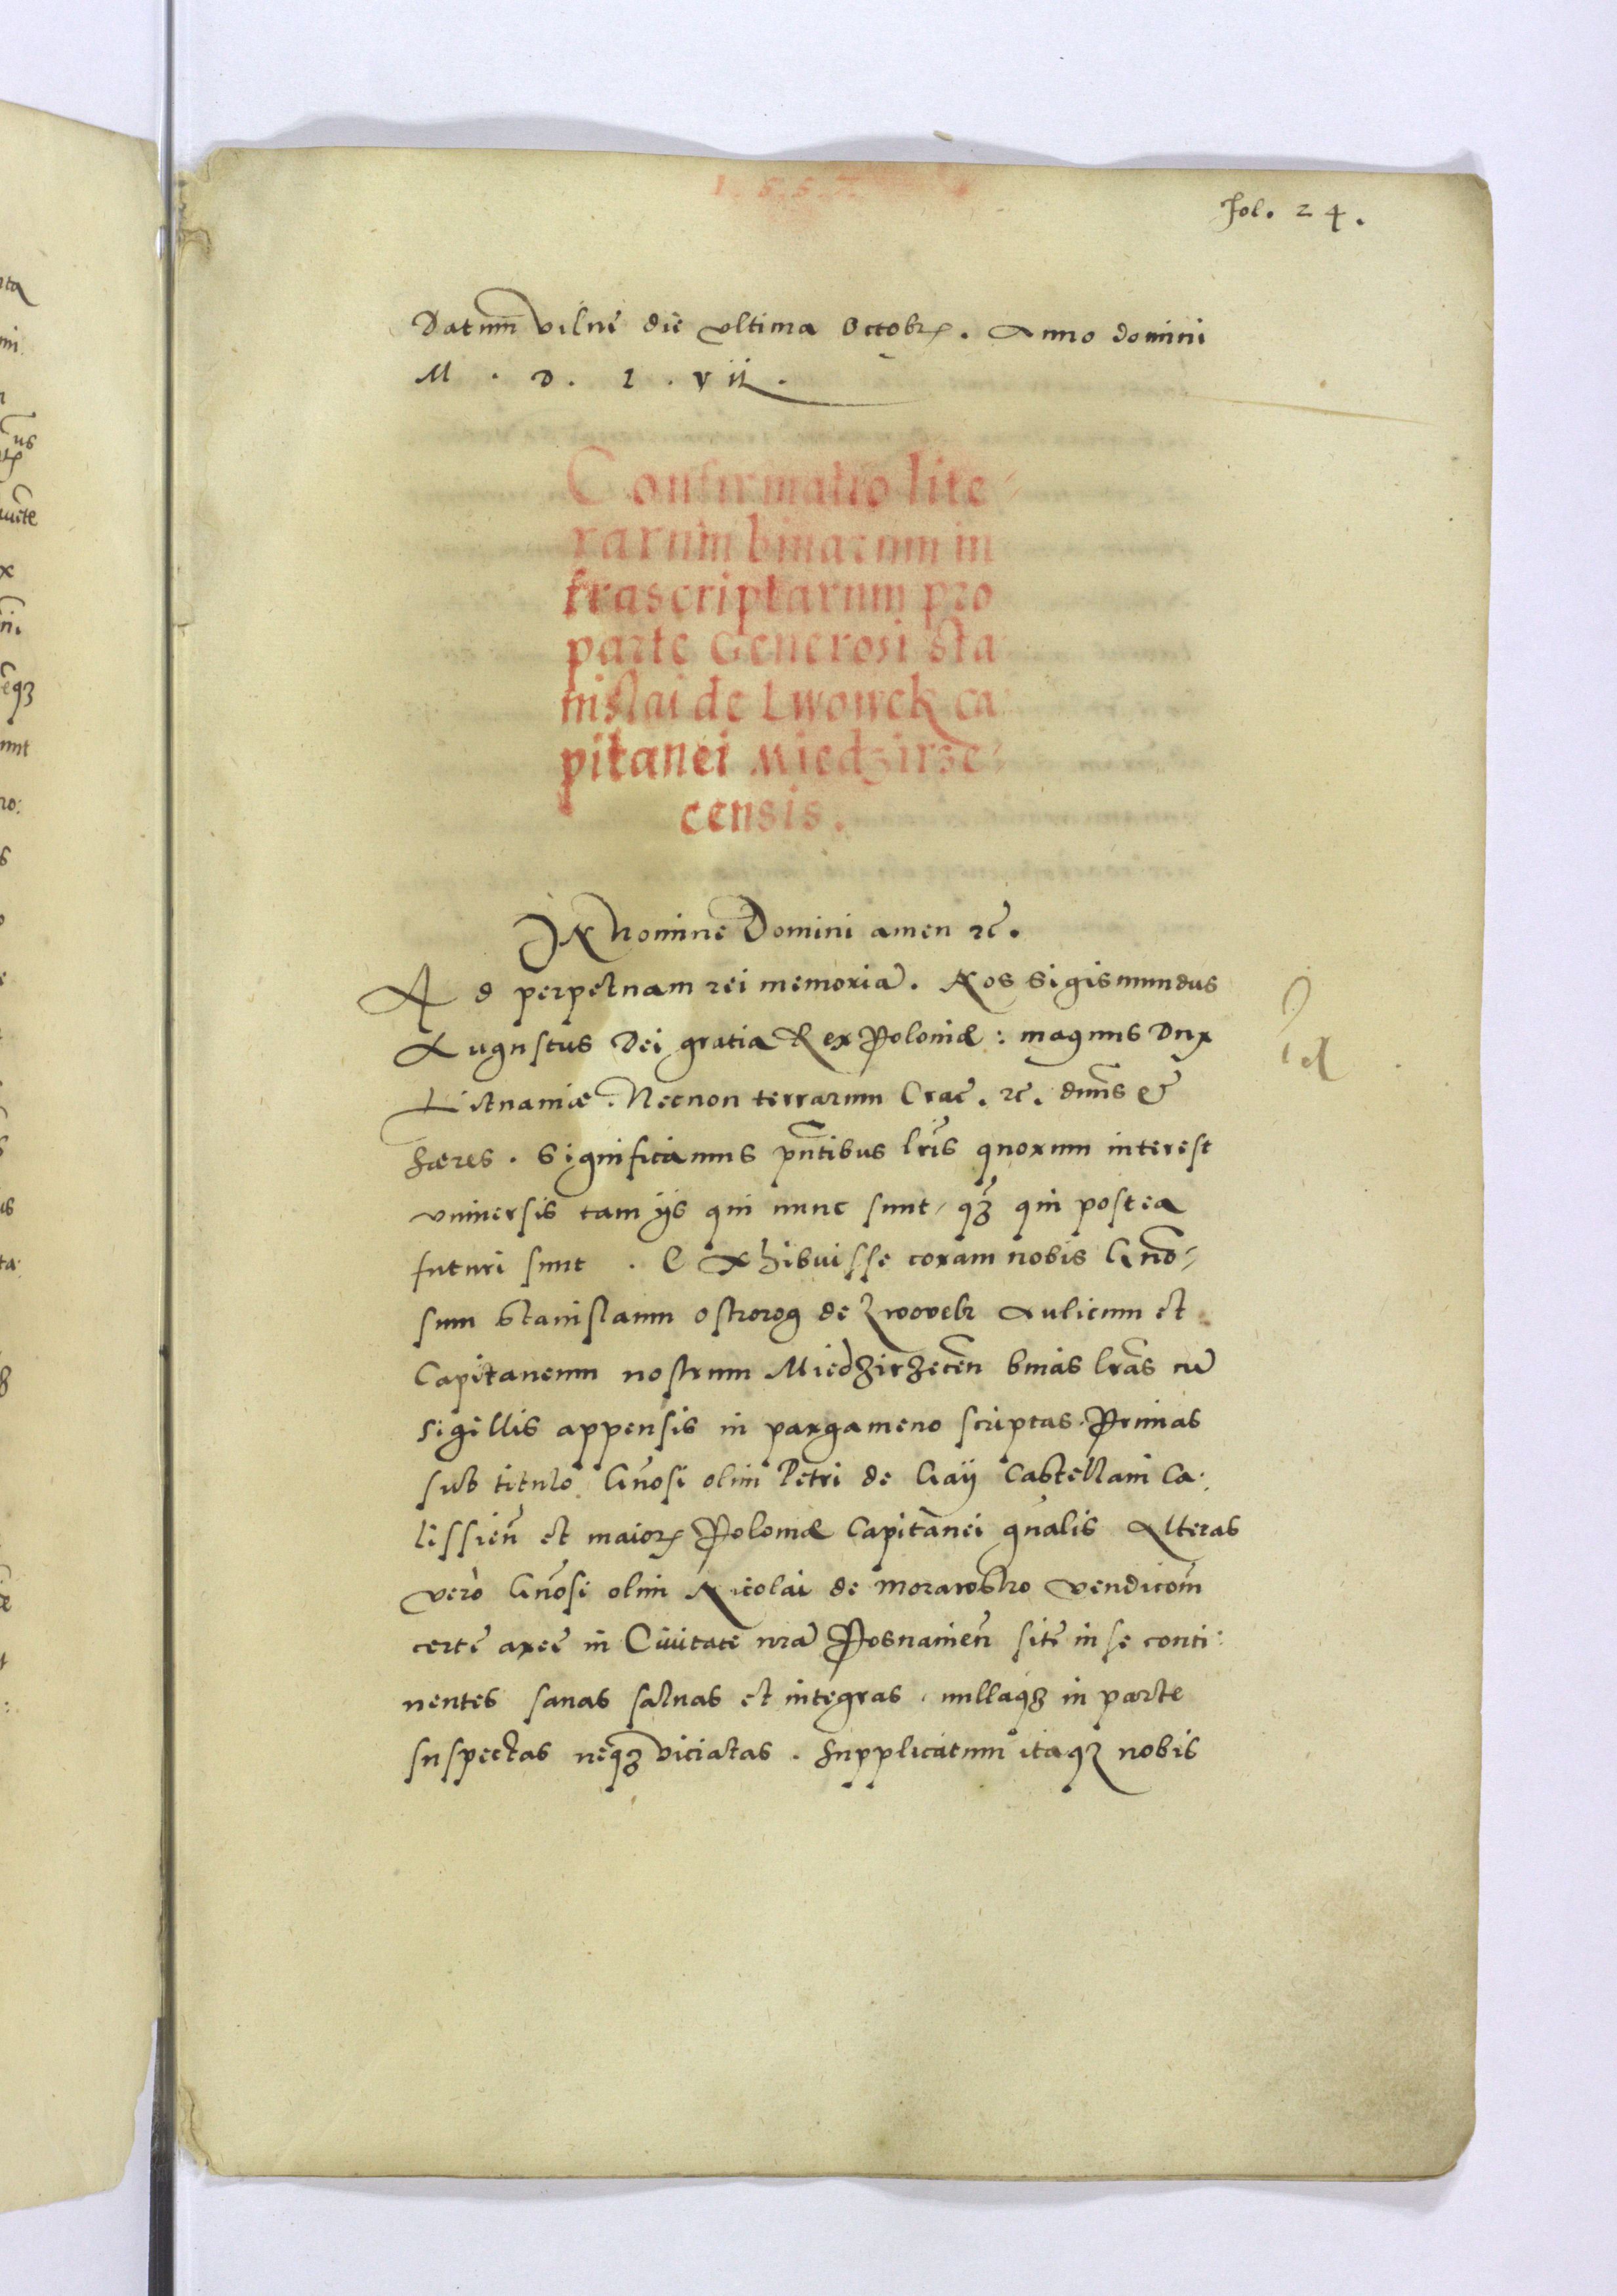 1.5.5.7.
fol. 24.
Datum Vilnę die vltima Octobr. Anno domini
M. D. L. Vii.
Confirmatio lite-
rarum binarum in
frascriptarum pro
parte Generosi Sta
nislai de Lwowek ca
pitanei Miedzirze-
censis.
IN Nomine Domini amen ꝛc̄.
Ad perpetuam rei memoriā. Nos Sigismundus
Augustus Dei gratia Rex Poloniæ: magnus Dux
Lituaniæ. Necnon terrarum Crac̄. ꝛc̄. dnūs &
hæres. Significamus pn̄tibus lr̄is quorum interest
vniuersis tam ijs qui nunc sunt, qꝫ̄ qui postea
futuri sunt. Exhibuisse coram nobis Gn̄o-
sum Stanislaum Ostrorog de Lwowek Aulicum et
Capitaneum nostrum Miedzirzecen̄ binas lr̄as cū
sigillis appensis in pargameno scriptas. Primas
sub titulo Gn̄osi olim Petri de Gaij Castellani Ca-
lissien̄ et maior̄ Poloniæ Capitanei gn̄alis Alteras
verò Gn̄osi olim Nicolai de Morawsko vendicōm̄
certę areę in Ciuitate nr̄a Posnanien̄ sitę in se conti-
nentes sanas saluas et integras, nullaqꝫ in parte
suspectas neqꝫ viciatas. Supplicatum itaqꝫ nobis